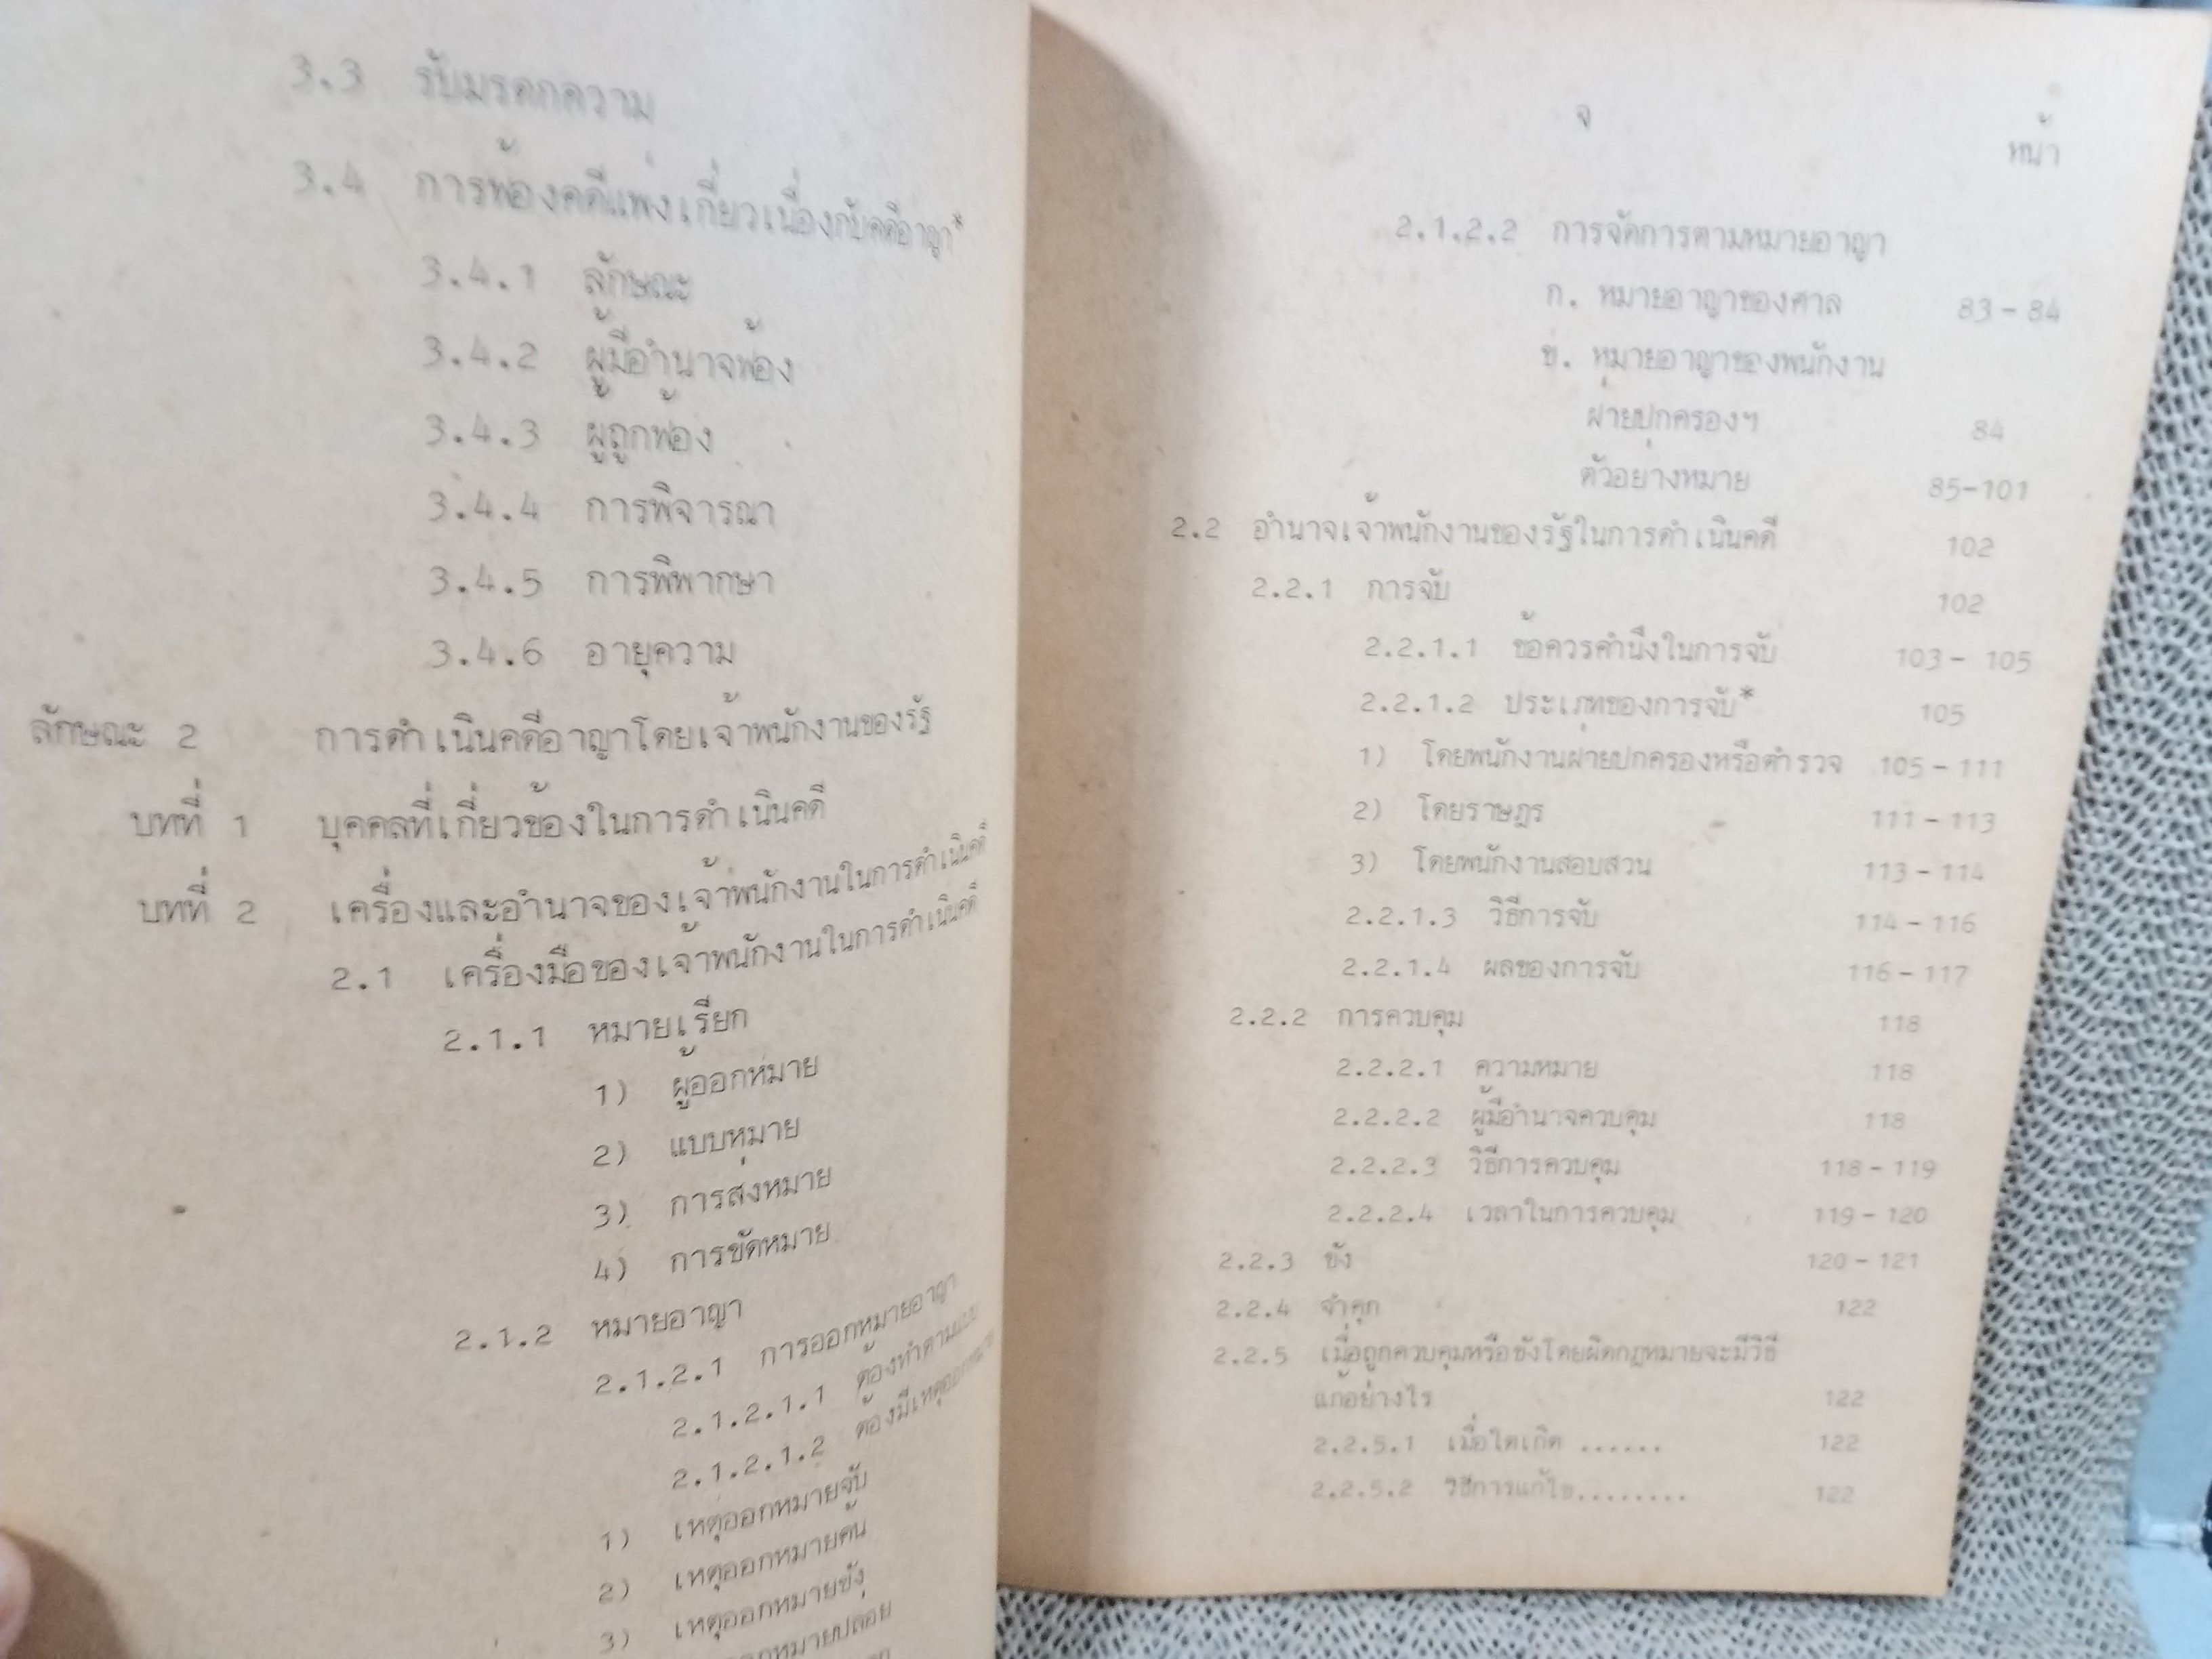 3.3 รับมรดกความ
3.4 การฟ้องคดีแพ่งเกี่ยวเนื่องกับคดีอาญา*
3.4.1 ลักษณะ
3.4.2 ผู้มีอำนาจฟ้อง
3.4.3 ผู้ถูกฟ้อง
3.4.4 การพิจารณา
3.4.5 การพิพากษา
3.4.6 อายุความ
ลักษณะ 2 การดำเนินคดีอาญาโดยเจ้าพนักงานของรัฐ
บทที่ 1 บุคคลที่เกี่ยวข้องในการดำเนินคดี
บทที่ 2 เครื่องและอำนาจของเจ้าพนักงานในการดำเนินคดี
2.1 เครื่องมือของเจ้าพนักงานในการดำเนินคดี
2.1.1 หมายเรียก
1) ผู้ออกหมาย
2) แบบหมาย
3) การส่งหมาย
4) การขัดหมาย
2.1.2 หมายอาญา
2.1.2.1 การออกหมายอาญา
2.1.2.1.1 ต้องทำตามแบบ
2.1.2.1.2 ต้องมีเหตุออกหมาย
1) เหตุออกหมายจับ
2) เหตุออกหมายค้น
3) เหตุออกหมายขัง
ออกหมายปล่อย
จ
หน้า
2.1.2.2 การจัดการตามหมายอาญา
ก. หมายอาญาของศาล 83 - 84
ข. หมายอาญาของพนักงาน
ฝ่ายปกครองฯ 84
ตัวอย่างหมาย 85-101
2.2 อำนาจเจ้าพนักงานของรัฐในการดำเนินคดี 102
2.2.1 การจับ 102
2.2.1.1 ข้อควรคำนึงในการจับ 103 - 105
2.2.1.2 ประเภทของการจับ* 105
1) โดยพนักงานฝ่ายปกครองหรือตำรวจ 105 - 111
2) โดยราษฎร 111 - 113
3) โดยพนักงานสอบสวน 113 - 114
2.2.1.3 วิธีการจับ 114 - 116
2.2.1.4 ผลของการจับ 116 - 117
2.2.2 การควบคุม 118
2.2.2.1 ความหมาย 118
2.2.2.2 ผู้มีอำนาจควบคุม 118
2.2.2.3 วิธีการควบคุม 118 - 119
2.2.2.4 เวลาในการควบคุม 119 - 120
2.2.3 ขัง 120 - 121
2.2.4 จำคุก 122
2.2.5 เมื่อถูกควบคุมหรือขังโดยผิดกฎหมายจะมีวิธี
แก้อย่างไร 122
2.2.5.1 เมื่อใดเกิด ...... 122
2.2.5.2 วิธีการแก้ไข........ 122